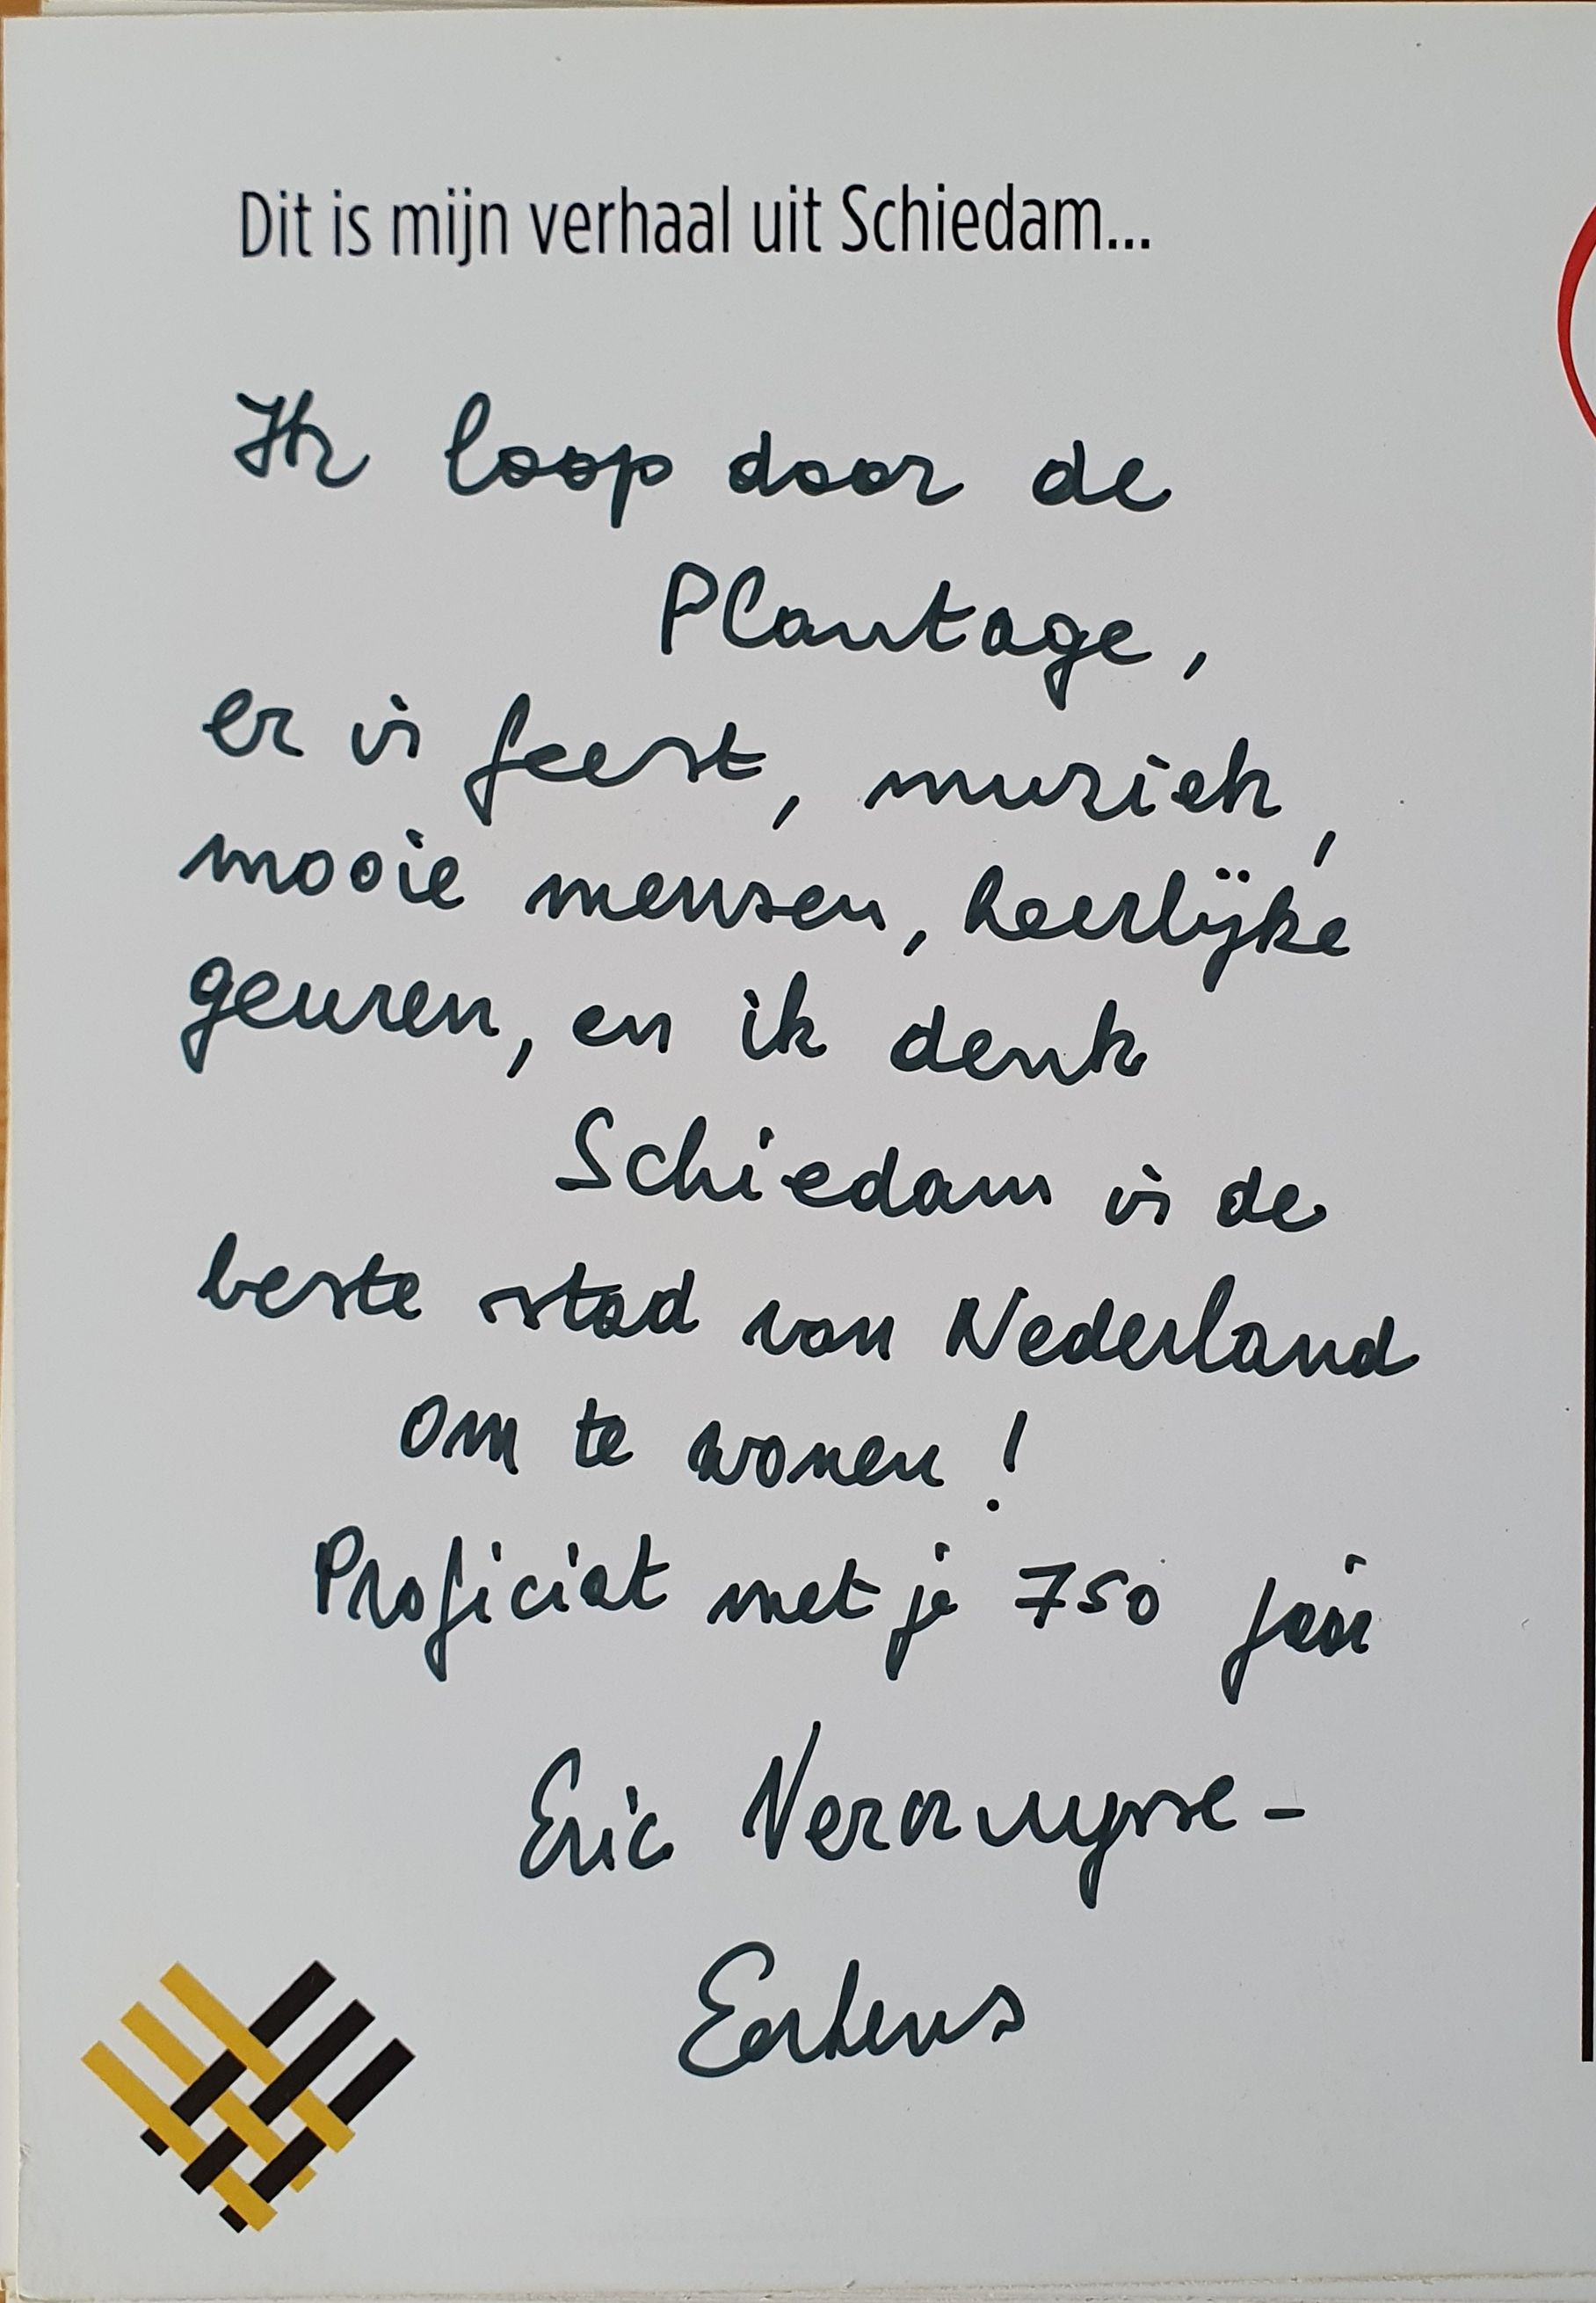 Dit is mijn verhaal uit Schiedam...
Ik loop door de
Plantage,
er is feest, muziek,
mooie mensen, heerlijke
geuren, en ik denk
Schiedam is de
beste stad van Nederland
om te wonen!
Proficiat met je 750 jaar
Eric